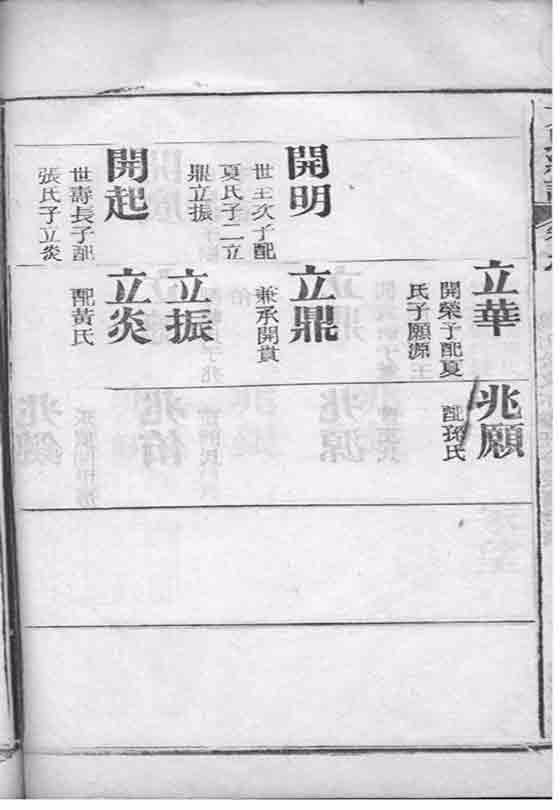 立華
開榮子配夏
氏子願源王
兆願
配孫氏
開明
世王次子配
夏氏子二立
鼎立振
立鼎
兼承開貫
立振
開起
世壽長子配
張氏子立炎
立炎
配黃氏